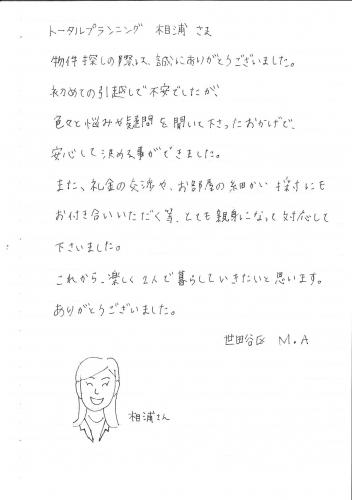 トータルプランニング 相浦 さま
物件探しの際は、誠にありがとうございました。
初めての引越しで不安でしたが、
色々と悩みや疑問を聞いて下さったおかげで、
安心して決める事ができました。
また、礼金の交渉や、お部屋の細かい採寸にも
お付き合いいただく等、とても親身になって対応して
下さいました。
これから、楽しく2人で暮らしていきたいと思います。
ありがとうございました。
世田谷区 M.A
相浦さん